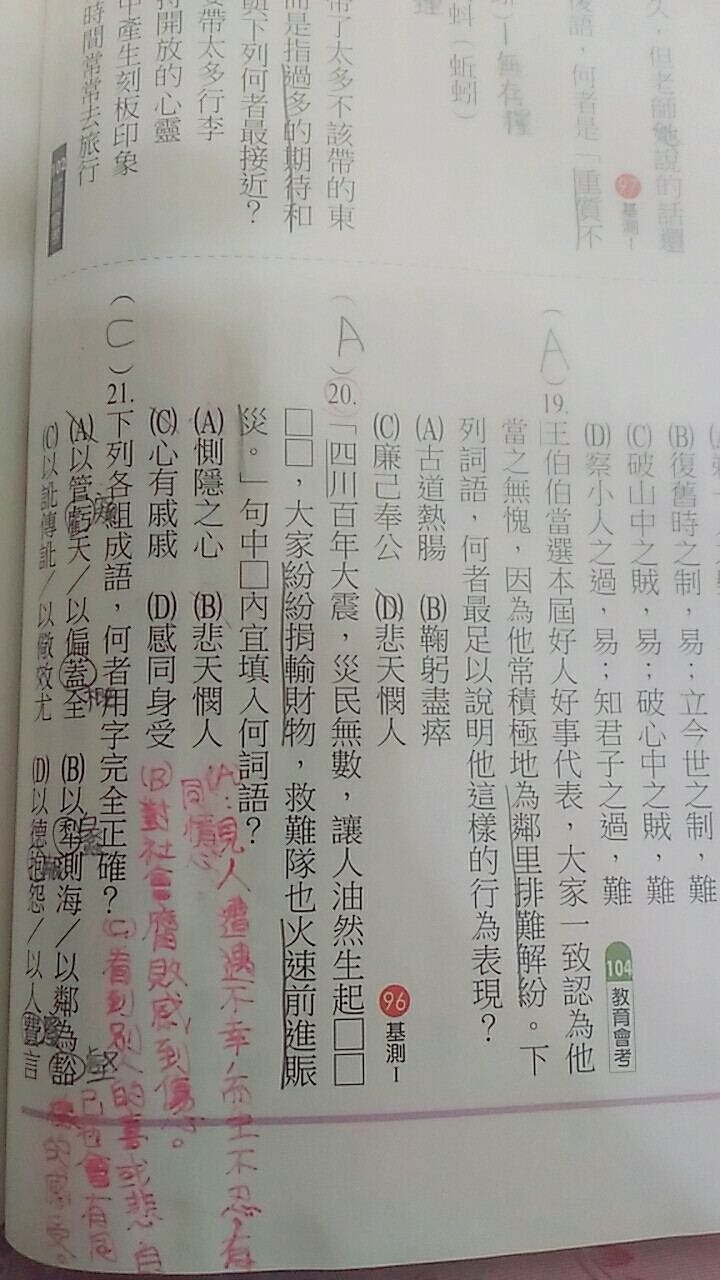 久，但老師她說的話還
97 基測I
後語，何者是「重質不
蚪（蚯蚓）
帶了太多不該帶的東
而是指過多的期待和
與下列何者最接近？
帶太多行李
持開放的心靈
中產生刻板印象
時間常常去旅行
(B)復舊時之制，易；立今世之制，難
(C)破山中之賊，易；破心中之賊，難
(D)察小人之過，易；知君子之過，難
104 教育會考
（A）19.王伯伯當選本屆好人好事代表，大家一致認為他
當之無愧，因為他常積極地為鄰里排難解紛。下
列詞語，何者最足以說明他這樣的行為表現？
(A)古道熱腸 (B)鞠躬盡瘁
(C)廉己奉公 (D)悲天憫人
96 基測I
（A）20.「四川百年大震，災民無數，讓人油然生起□□
□□，大家紛紛捐輸財物，救難隊也火速前進賑
災。」句中□內宜填入何詞語？
(A)惻隱之心 (B)悲天憫人
(C)心有戚戚 (D)感同身受
(A):見人遭遇不幸，而生不忍，有
同情心
(B)對社會腐敗感到傷心。
(C)看到別人的喜或悲，自
己也會有同
樣的感受。
（C）21.下列各組成語，何者用字完全正確？
(A)以管虧天／以偏蓋全 (B)以犁測海／以鄰為豁
窺 概 蠡 壑
(C)以訛傳訛／以儆效尤 (D)以德抱怨／以人費言
報 廢